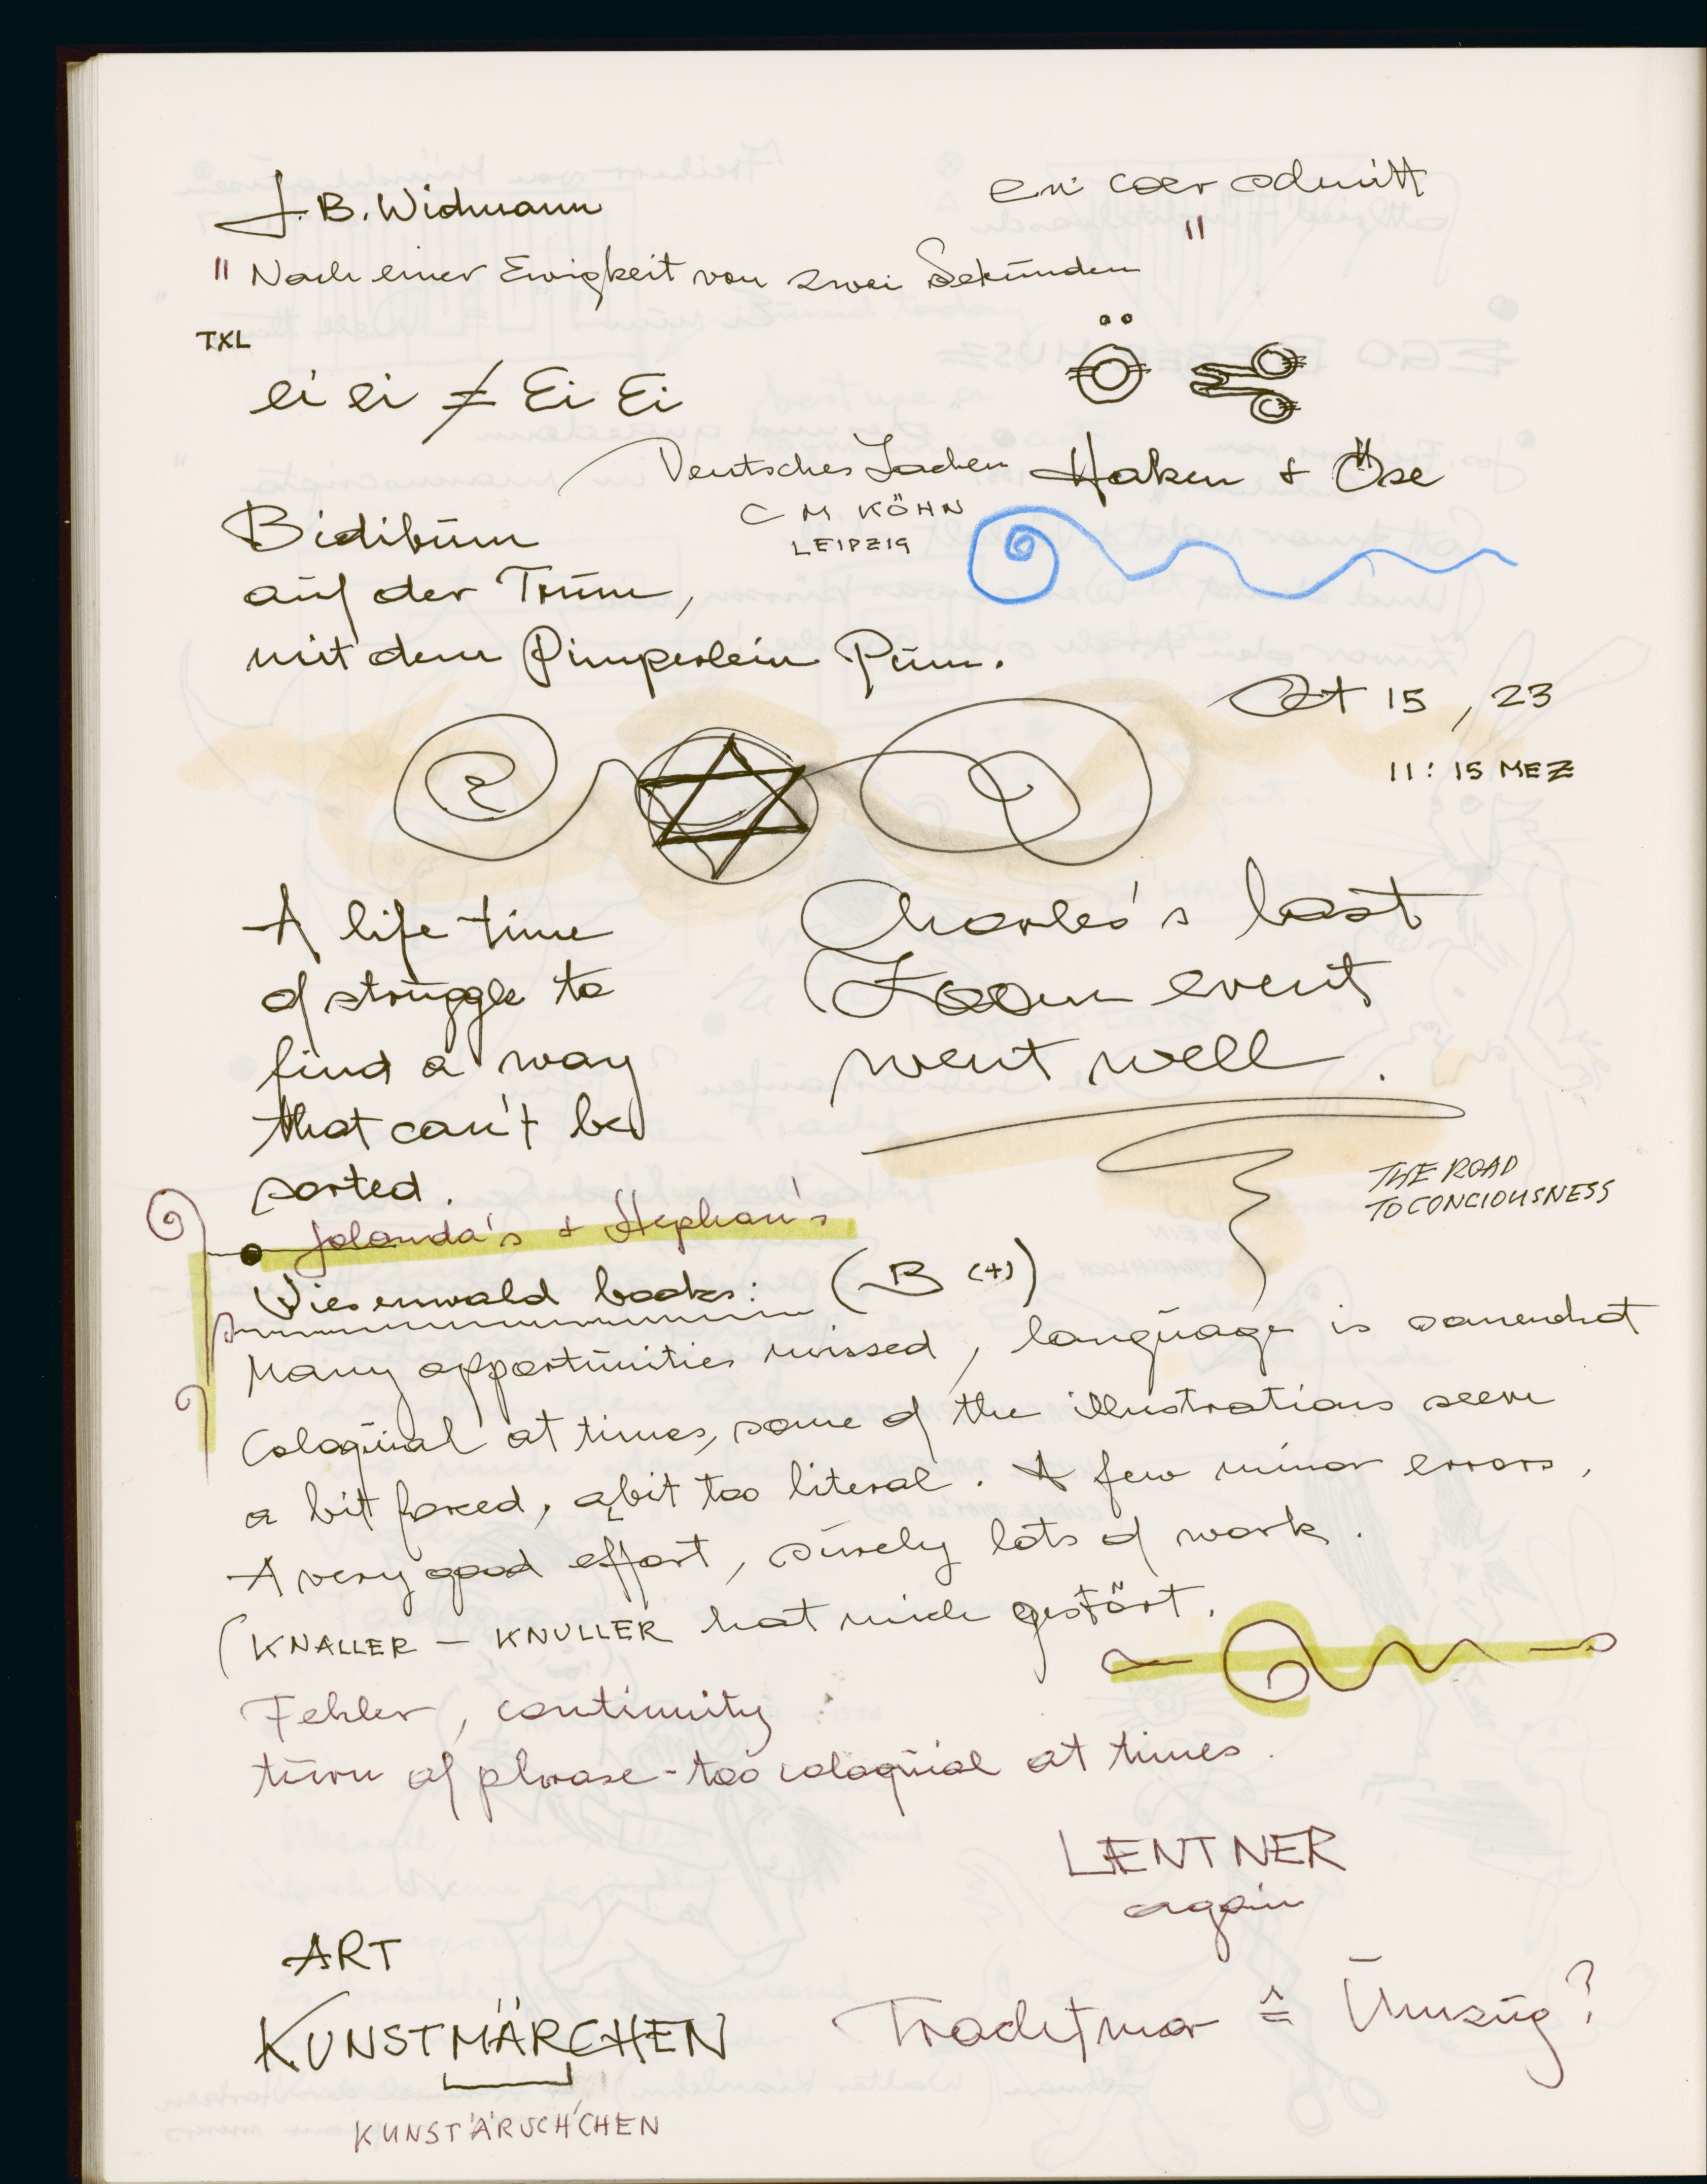 J. B. Widmann
"Nach einer Ewigkeit von zwei Sekunden"
TXL
ei ei ≠ Ei Ei
Deutsches Lachen
C M KÖHN
LEIPZIG
Haken + Öse
Bidibum
auf der Trum,
mit dem Pimperlein Pum.
Oct 15, 23
11:15 MEZ
A life time
of struggle to
find a way
that can't be
sorted.
Charles's last
Zoom event
went well.
THE ROAD
TO CONCIOUSNESS
• Jolanda's + Stephan's
Wiesenwald books: (B (+))
Many opportunities missed, language is somewhat
coloquial at times, some of the illustrations seem
a bit forced, a bit too literal. A few minor errors,
A very good effort, surely lots of work.
(KNALLER – KNULLER hat mich gestört.
Fehler, continuity
turn of phrase - too coloquial at times.
LÆNTNER
again
ART
KUNSTMÄRCHEN
KUNST'ÄRSCH'CHEN
≙ Umzug?